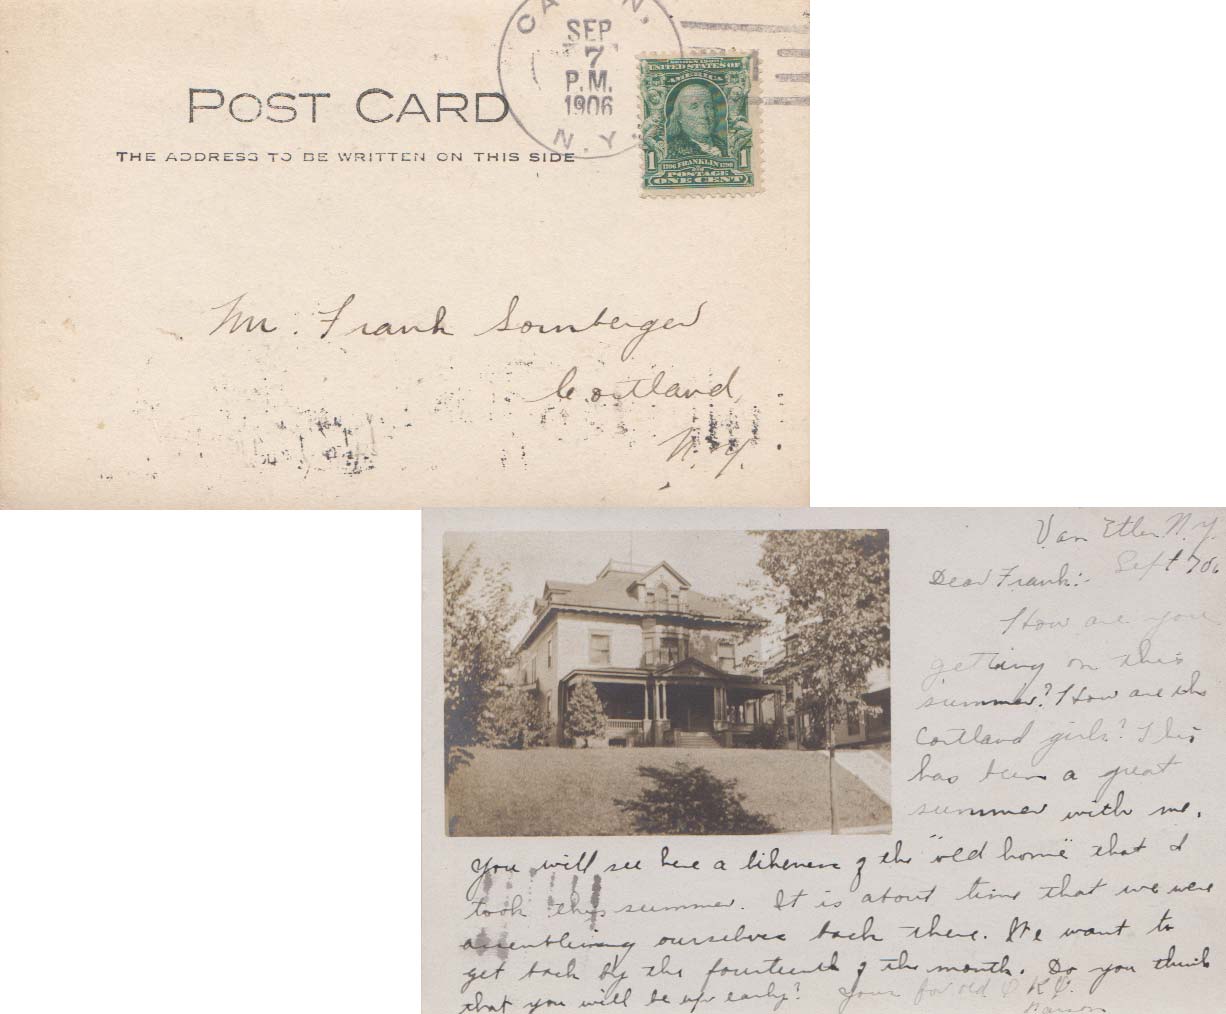 SEP
7
P.M.
1906
N.Y.
SERIES 1902
UNITED STATES OF
AMERICA
1 FRANKLIN 1
POSTAGE
ONE CENT
POST CARD
THE ADDRESS TO BE WRITTEN ON THIS SIDE
Mr. Frank Sornberger
Cortland,
N.Y.
Van Etten N.Y.
Sept 7 06
Dear Frank:-
How are you
getting on this
summer? How are the
Cortland girls? This
has been a great
summer with me.
You will see here a likeness of the "old home" that I
took this summer. It is about time that we were
assembleing ourselves back there. We want to
get back by the fourteenth of the month. Do you think
that you will be up early? Yours for old Φ K Ψ.